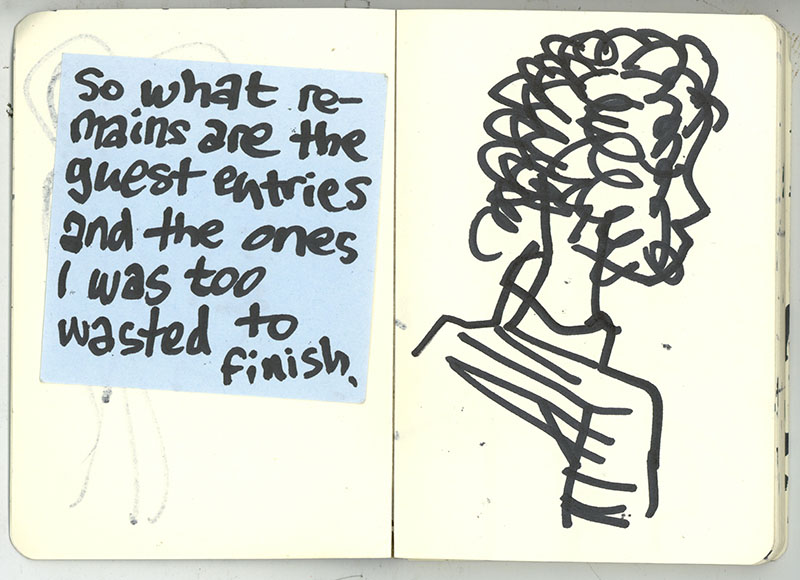 So what re-
mains are the
guest entries
and the ones
I was too
wasted to
finish.